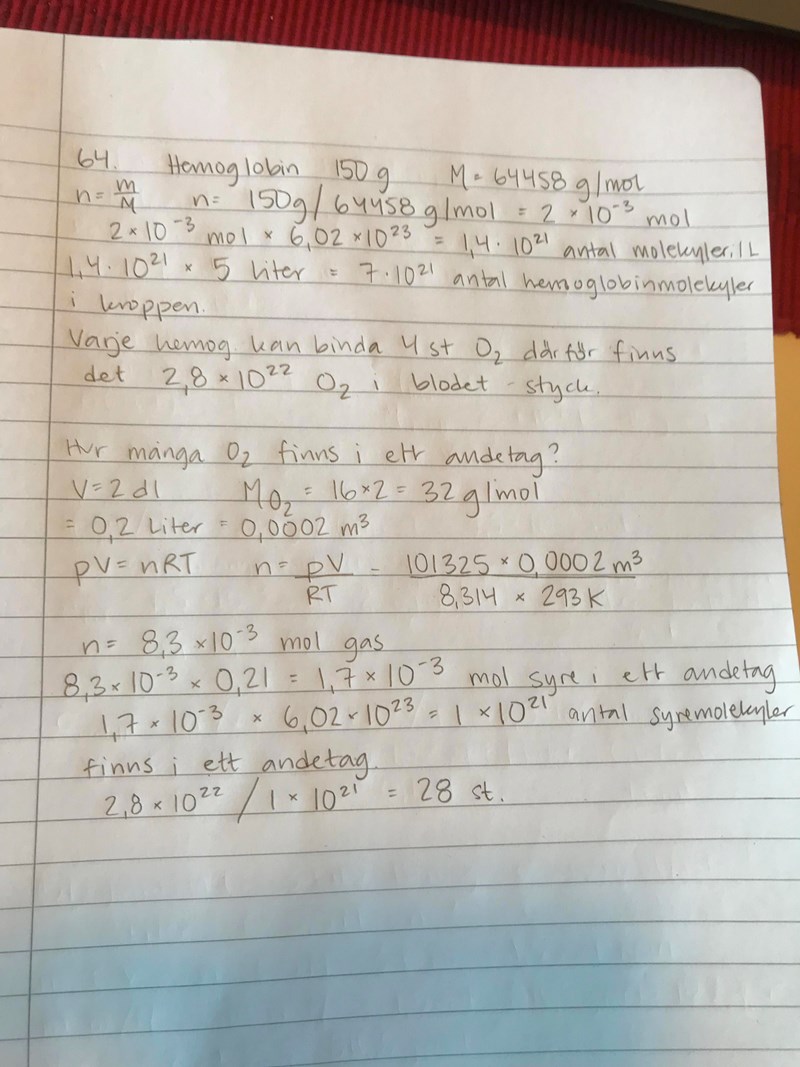 64. Hemoglobin 150 g M = 64458 g/mol
n = m/M n = 150g/64458 g/mol = 2 × 10⁻³ mol
2 × 10⁻³ mol × 6,02 × 10²³ = 1,4 · 10²¹ antal molekyler, i L
1,4 · 10²¹ × 5 liter = 7 · 10²¹ antal hemoglobinmolekyler
i kroppen.
Varje hemog kan binda 4 st O₂ därför finns
det 2,8 × 10²² O₂ i blodet - styck.
Hur många O₂ finns i ett andetag?
V = 2 dl M O₂ = 16 × 2 = 32 g/mol
= 0,2 Liter = 0,0002 m³
pV = nRT n = pV/RT = 101325 × 0,0002 m³ / 8,314 × 293 K
n = 8,3 × 10⁻³ mol gas
8,3 × 10⁻³ × 0,21 = 1,7 × 10⁻³ mol syre i ett andetag
1,7 × 10⁻³ × 6,02 × 10²³ = 1 × 10²¹ antal syremolekyler
finns i ett andetag.
2,8 × 10²² / 1 × 10²¹ = 28 st.